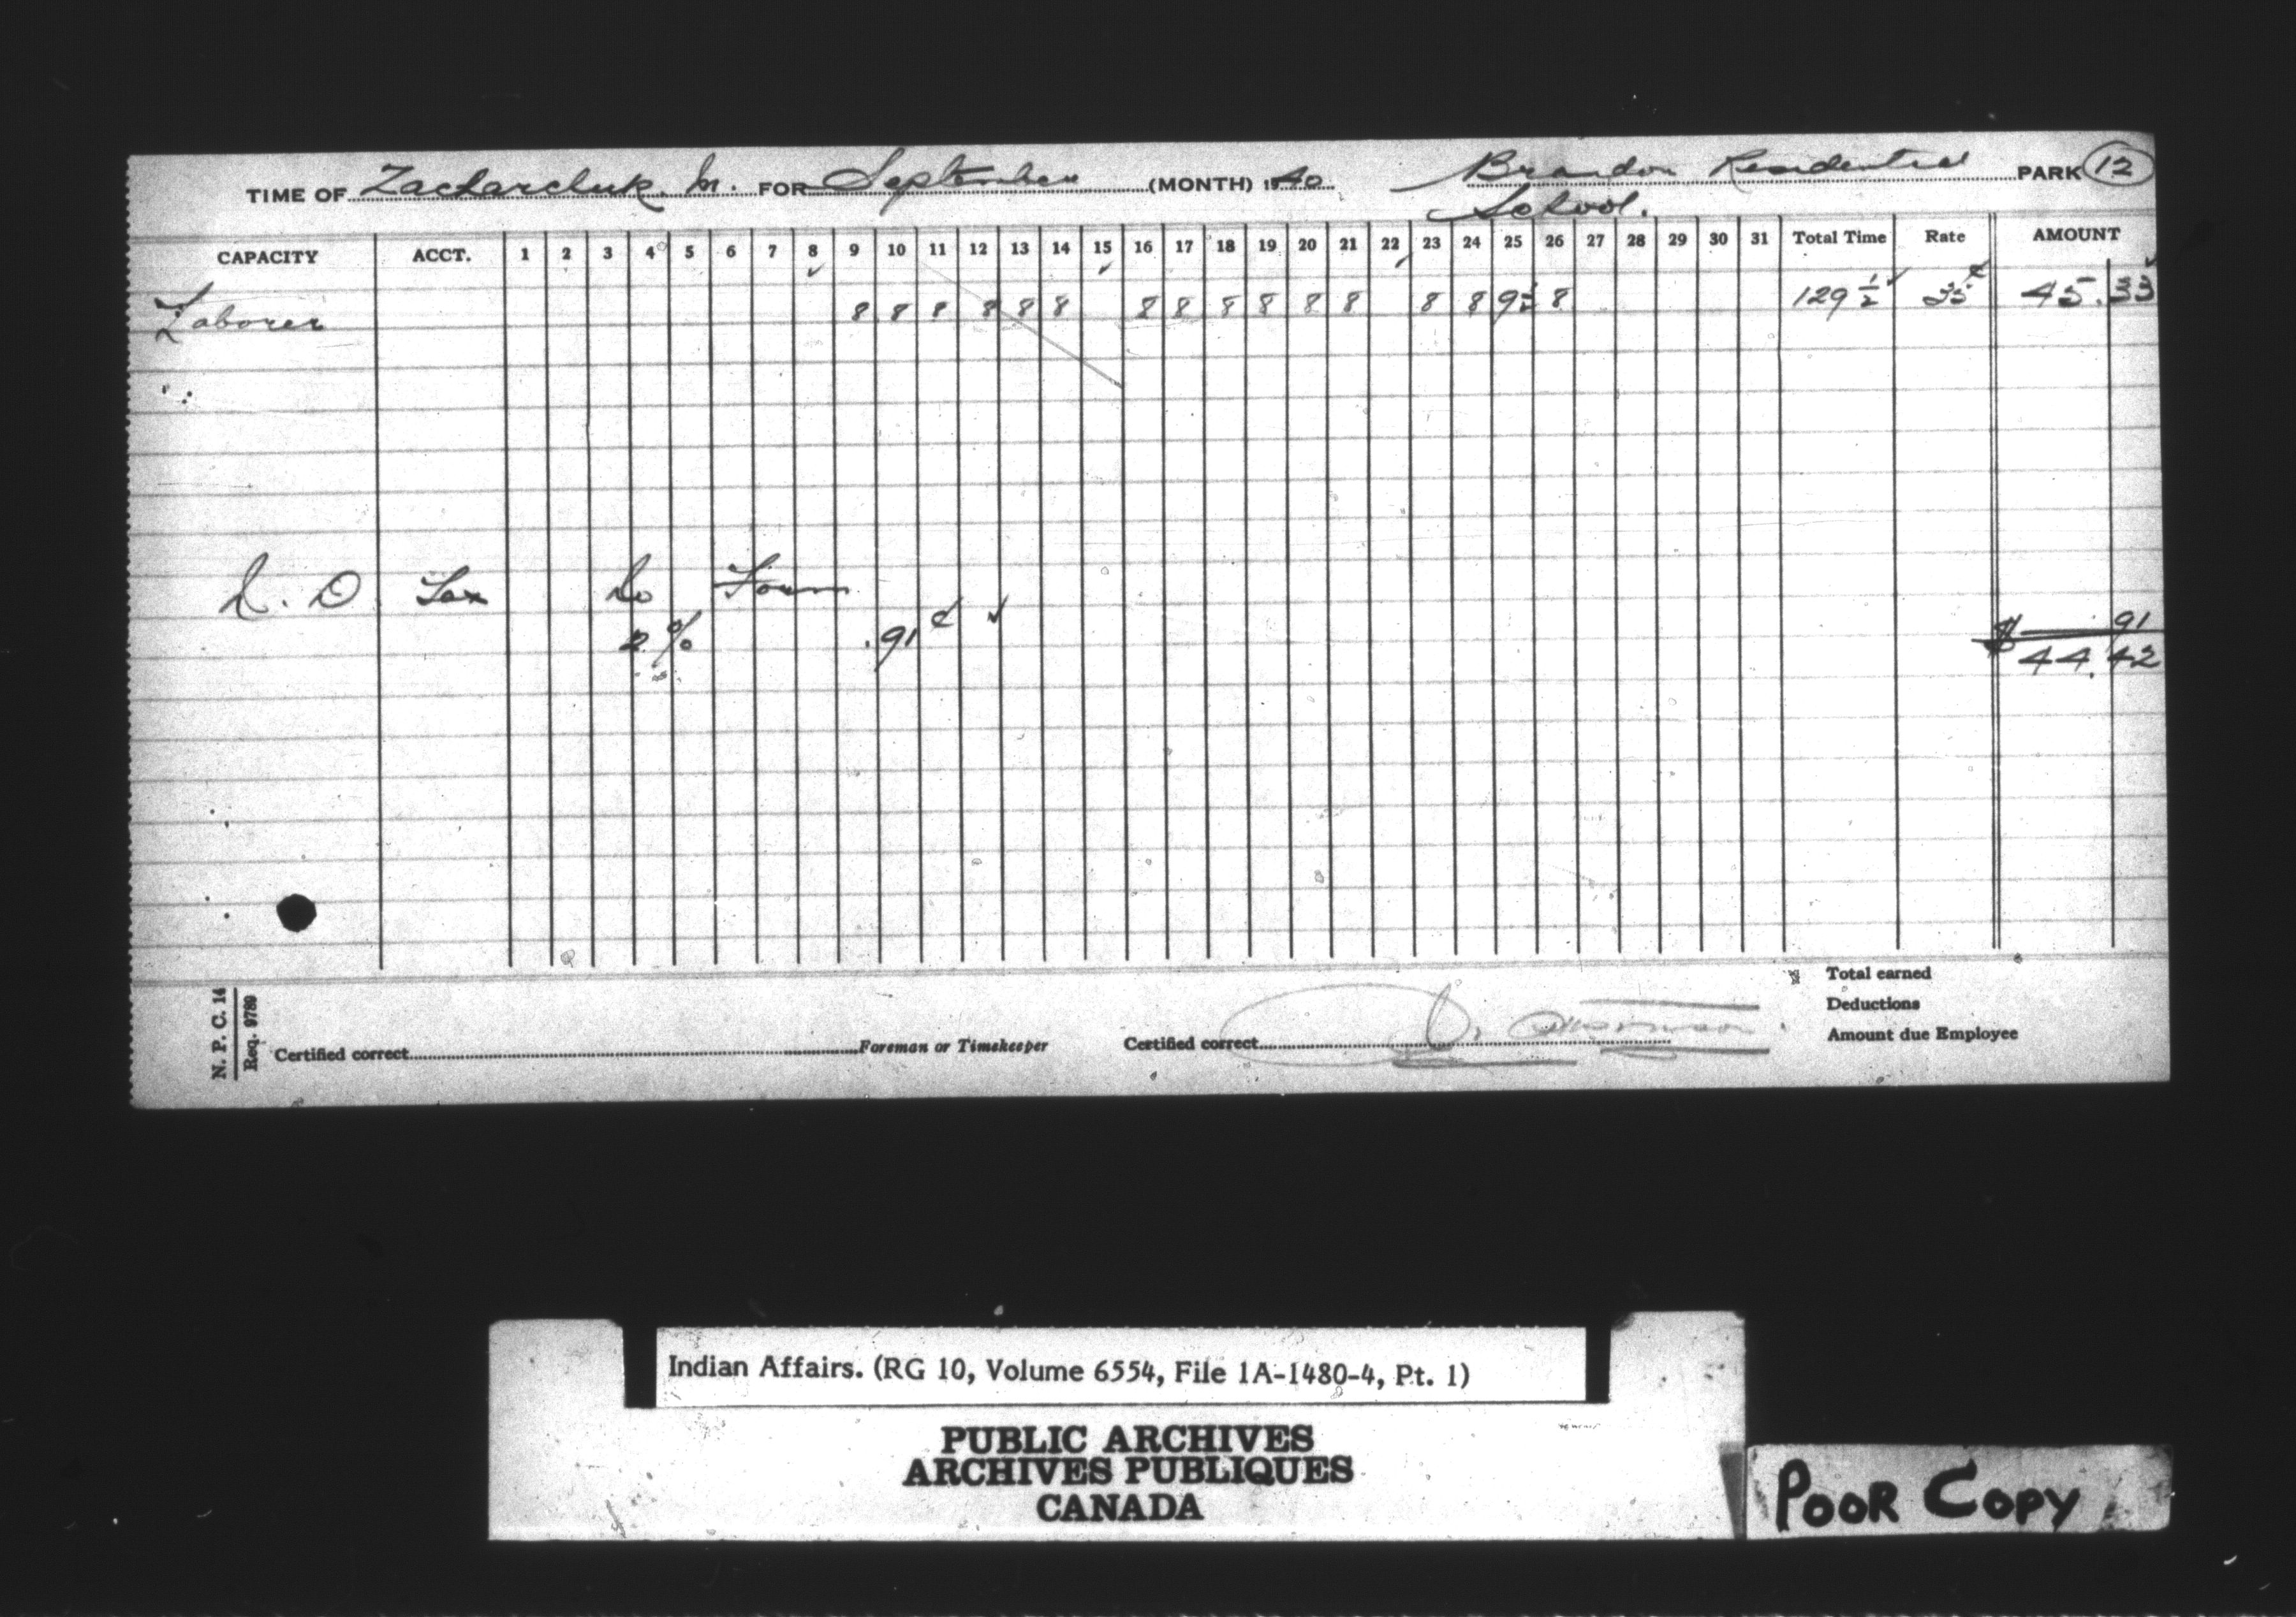 TIME OF Zacharchuk. M. FOR September (MONTH) 1940 Brandon Residential PARK 12
School.
CAPACITY ACCT. 1 2 3 4 5 6 7 8 9 10 11 12 13 14 15 16 17 18 19 20 21 22 23 24 25 26 27 28 29 30 31 Total Time Rate AMOUNT
Laborer 8 8 8 8 8 8 8 8 8 8 8 8 8 8 9½ 8 129½ 35¢ 45.33
N. D Tax No Form
2% .91¢ .91
$ 44.42
Total earned
Deductions
Amount due Employee
N. P. C. 14
Req. 9789
Certified correct Foreman or Timekeeper Certified correct
Indian Affairs. (RG 10, Volume 6554, File 1A-1480-4, Pt. 1)
PUBLIC ARCHIVES
ARCHIVES PUBLIQUES
CANADA
POOR COPY